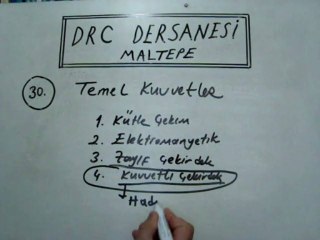 DRC DERSANESİ
MALTEPE
30. Temel Kuvvetler
1. Kütle Çekim
2. Elektromanyetik
3. Zayıf Çekirdek
4. Kuvvetli Çekirdek
Had